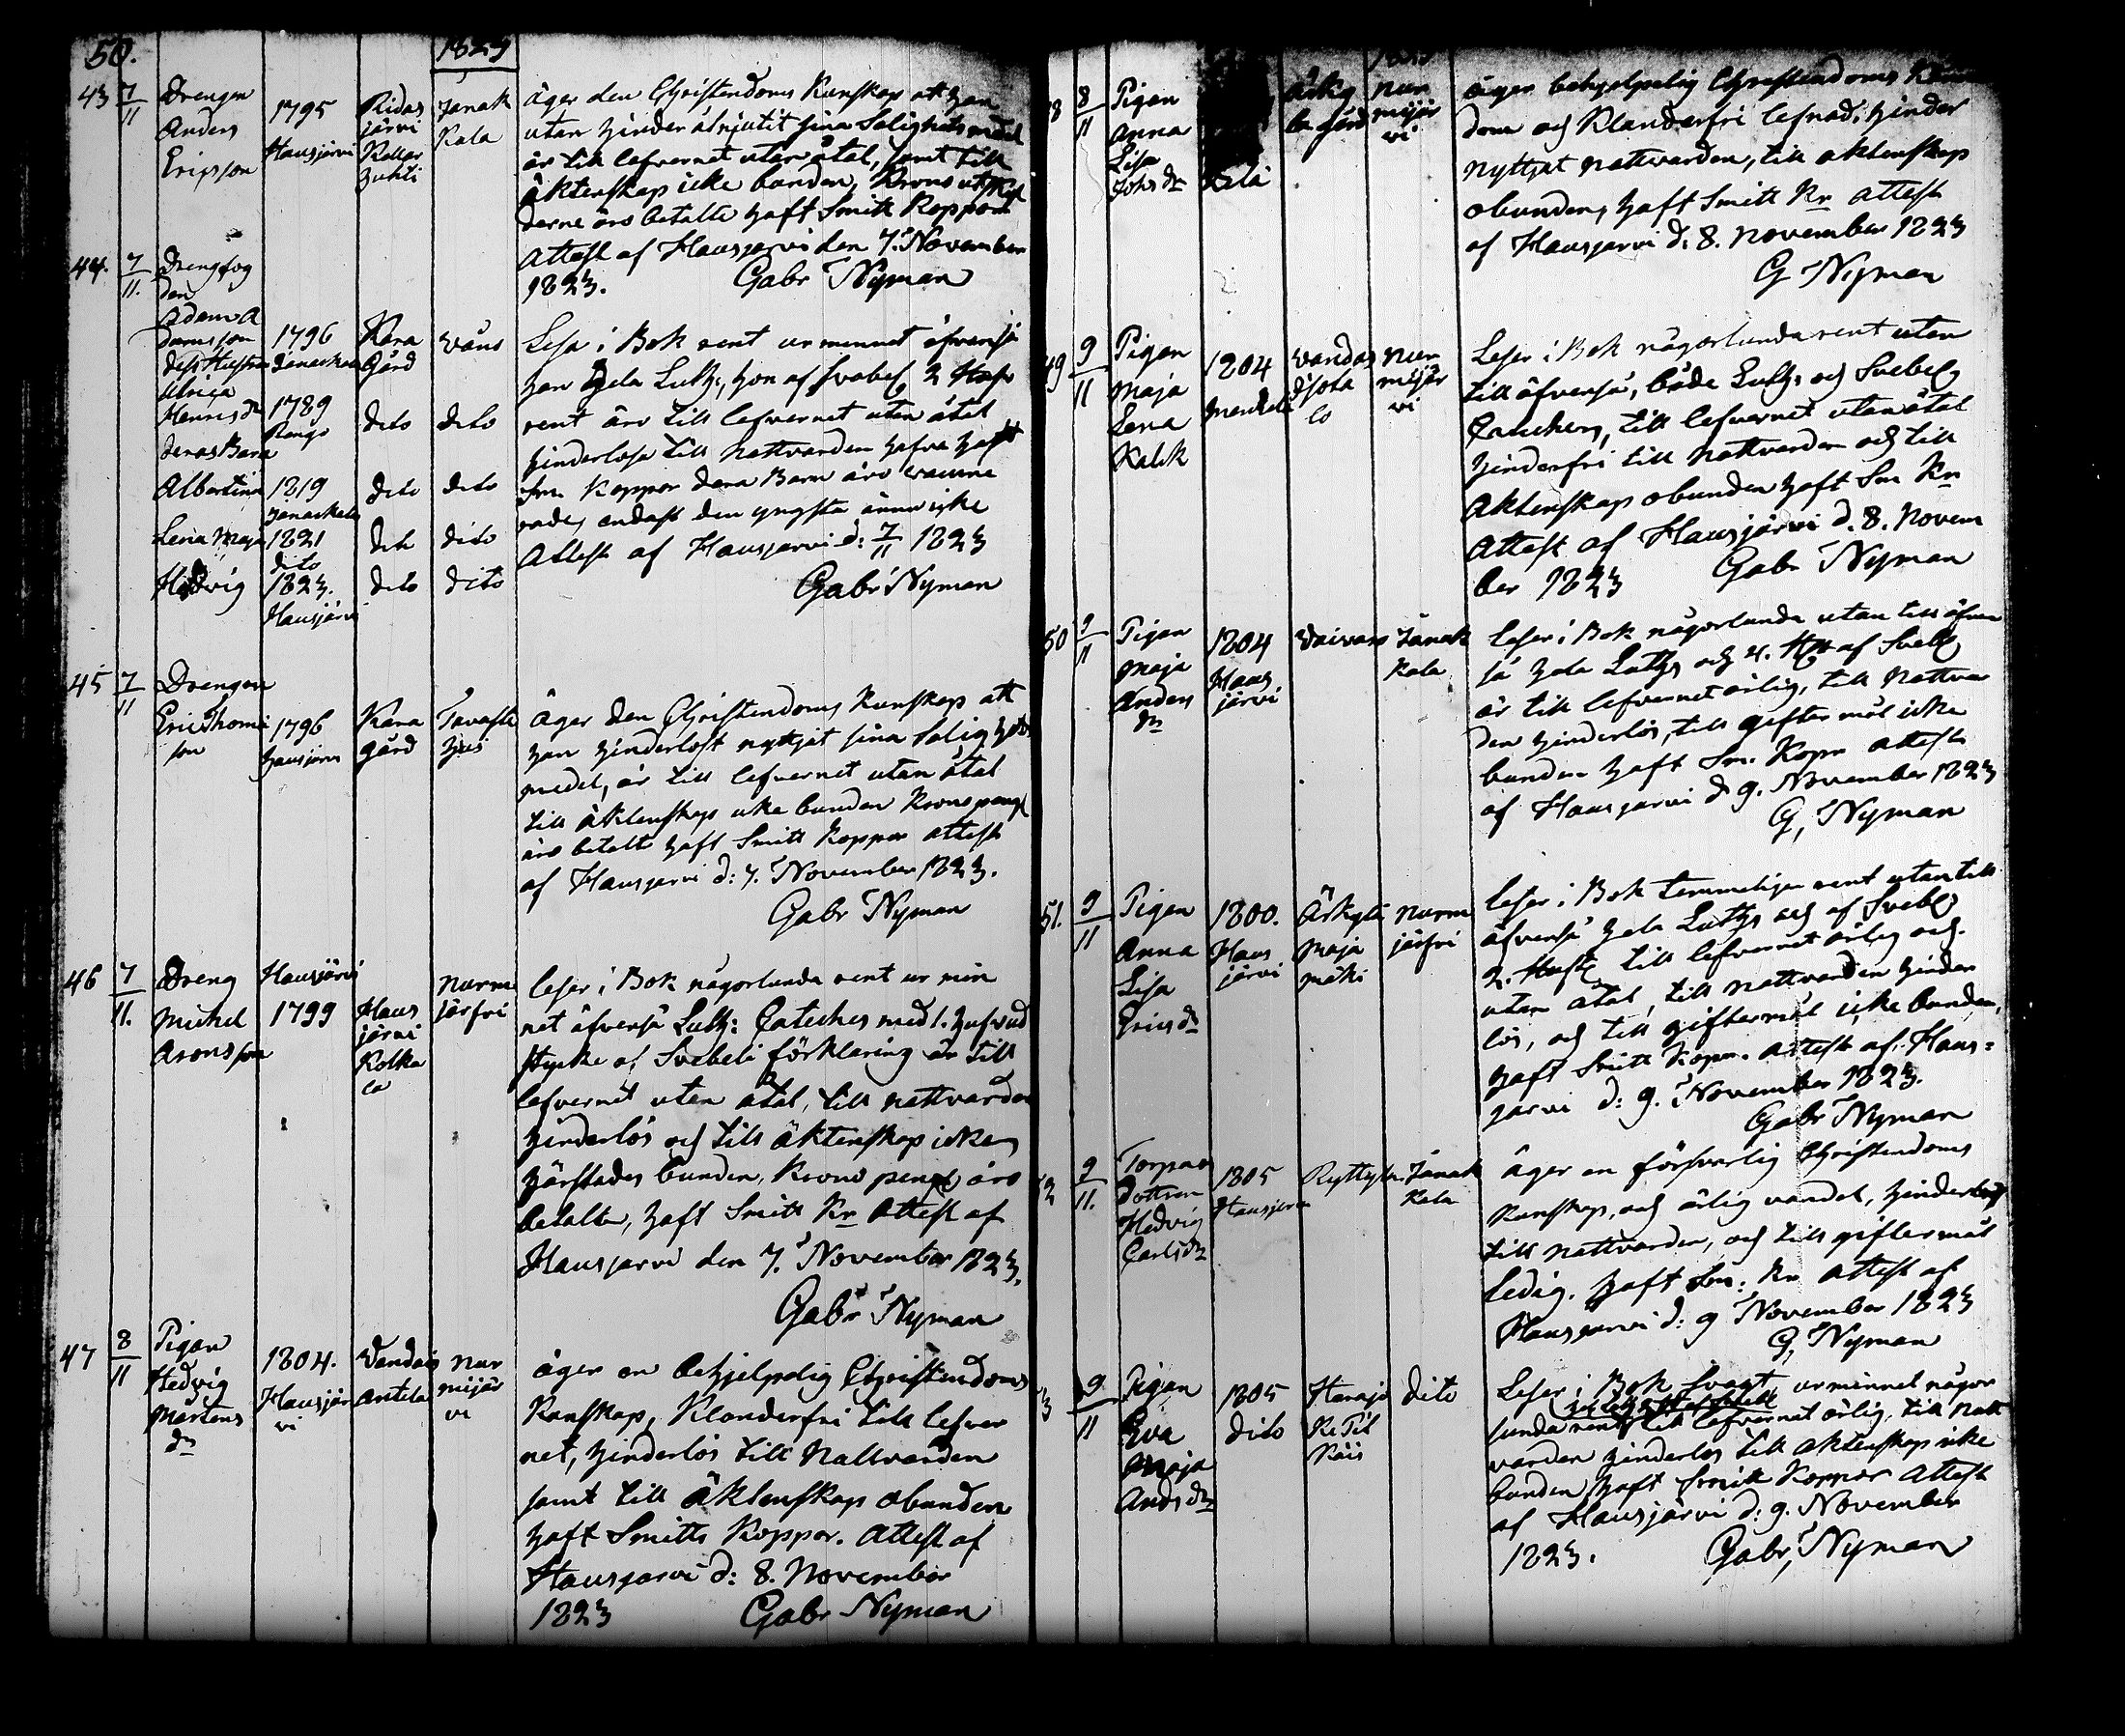 50.
1823
43 7/11 Drengen Anders Ericsson
1795 Hausjärvi
Ridas järvi
Janak Kala
äger den Christendoms Kunskap att han
utan hinder åtnjutit sina Salighets medel
är till lefvernet utan åtal, samt till
äktenskap icke bunden, Krono utskyl
derne äro betalte haft Smitt Koppor
Attest af Hausjarvi den 7. November
1823. Gabr Nyman
44. 7/11. Drengfog
den
Adam A
damsson 1796 Kara Gård Wåno
dess Hustru
Ulrica
Henricsdr 1789 Rengo dito dito
deras Barn
Albertina 1819 dito dito
Lena Maja 1821 dito dito dito
Hedvig 1823. Hausjärvi dito dito
Lesa i Bok rent ur minnet äfvenså
han hela Luth:, hon af Svebel. 2
rent äro till lefvernet utan åtal
hinderlösa till Nattvarden hafva haft
Sm. Koppor dera Barn äro vaccine
rade, endast den yngsta ännu icke
Attest af Hausjarvi d: 7/11 1823
Gabr Nyman
45 7/11 Drengen
Eric Thoms
son
1796 Hausjärvi
Kara gård
Tavaste hus
Äger den Christendoms Kunskap att
han hinderlöst nyttjat sina Salighets
medel, är till lefvernet utan åtal
till äktenskap icke bunden Krono peng
äro betalte haft Smitt Koppor Attest
af Hausjarvi d: 7. November 1823.
Gabr Nyman
46 7/11. Dreng Michel Aronsson
Hausjärvi 1799
Haus järvi Kolka la
Nurm järfvi
leser i Bok någorlunda rent ur min
net äfvenså Luth: Cateches med 1. hufvud
stycke af Svebeli förklaring är till
lefvernet utan åtal, till nattvarden
hinderlös och till äktenskap icke
härstädes bunden, Krono peng äro
betalte, haft Smitt Kr Attest af
Hausjarvi den 7. November 1823.
Gabr Nyman
47 8/11 Pigan Hedvig Mårtens dr
1804. Hausjär vi
Vandais Antila
Nur mijär vi
äger en behjelpelig Christendoms
Kunskap, Klanderfri till lefver
net, hinderlös till Nattvarden
samt till äktenskap obunden
haft Smitts Koppor. Attest af
Hausjarvi d: 8. November
1823 Gabr Nyman
8 8/11 Pigan Anna Lisa Johsdr
Nur mijär vi
äger behjelpelig Christendoms
dom och Klanderfri lefnad; hinder
nyttjat nattvarden, till äktenskap
obunden, haft Smitt Kr Attest
af Hausjarvi d: 8. November 1823
G Nyman
49 9/11 Pigan Maja Lena
1804
Nur mijär vi
Leser i Bok någorlunda rent utan
till äfvenså, både Luth: och Svebely
Cateches, till lefvernet utan åtal
hinderfri till Nattvarden och till
Äktenskap obunden haft Sm Kr
Attest af Hausjärvi d. 8. Novem
ber 1823 Gabr Nyman
50 9/11 Pigan Maja Anders dr
1804 Haus järvi
Janak Kala
Leser i Bok någorlunda utan till äfven
så hela Luth: och af Svebel
är till lefvernet ärlig, till Nattvar
den hinderlös, till giftermål icke
bunden haft Sm. Kopr Attest
af Hausjarvi d 9. November 1823
G, Nyman
51. 9/11 Pigan Anna Lisa Ericsdr
1800. Haus järvi
Maja mäki
Nurm järfvi
Leser i Bok temmeligen rent utantill
äfvenså hela Luths och af Svebel
2. till lefvernet ärlig och
utan åtal, till nattvarden hinder
lös, och till giftermål icke bunden,
haft Smitt Kopor. Attest af Haus=
jarvi d: 9. November 1823.
Gabr Nyman
52 9/11. Torpare Dottren Hedvig Carlsdr
1805 Hausjärvi
Ryttylä
Janak Kala
äger en försvarlig Christendoms
Kunskap, och ärlig vandel, hinderlös
till nattvarden, och till giftermål
ledig. haft Sm: Kr Attest af
Hausjarvi d: 9 November 1823
G, Nyman
3 9/11 Pigan Eva Maja Andsdr
1805 dito
dito
Leser i Bok svagt ur minnet någor
lunda rent till lefvernet ärlig, till Natt
varden hinderlös till äktenskap icke
bunden, haft Smitt Koppor Attest
af Hausjärvi d: 9. November
1823. Gabr, Nyman